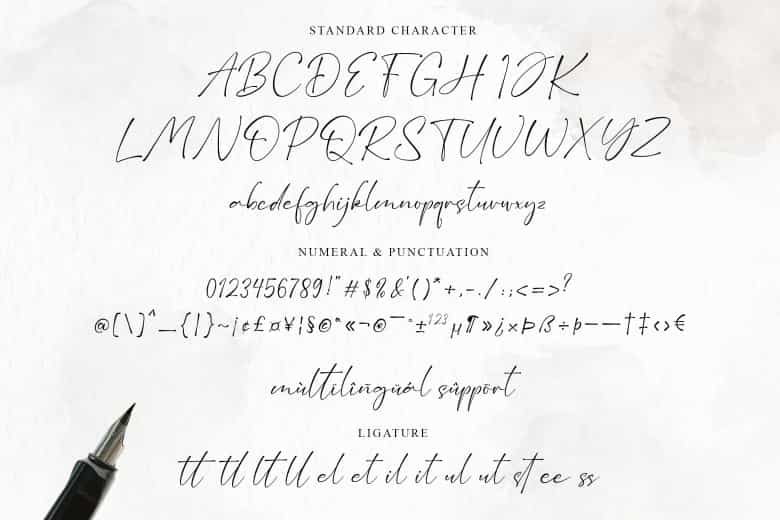 STANDARD CHARACTER
ABCDEFGHIJK
LMNOPQRSTUVWXYZ
abcdefghijklmnopqrstuvwxyz
NUMERAL & PUNCTUATION
0123456789!"#$%&'()*+,-./:;<=>?
@[\]^_{|}~¡¢£¤¥¦§©ª«¬®¯°±123µ¶»¿×Þß÷þ–—†‡‹›€
mùltilîñgùál sûppört
LIGATURE
tt tl lt ll el et il it ul ut st ee ss